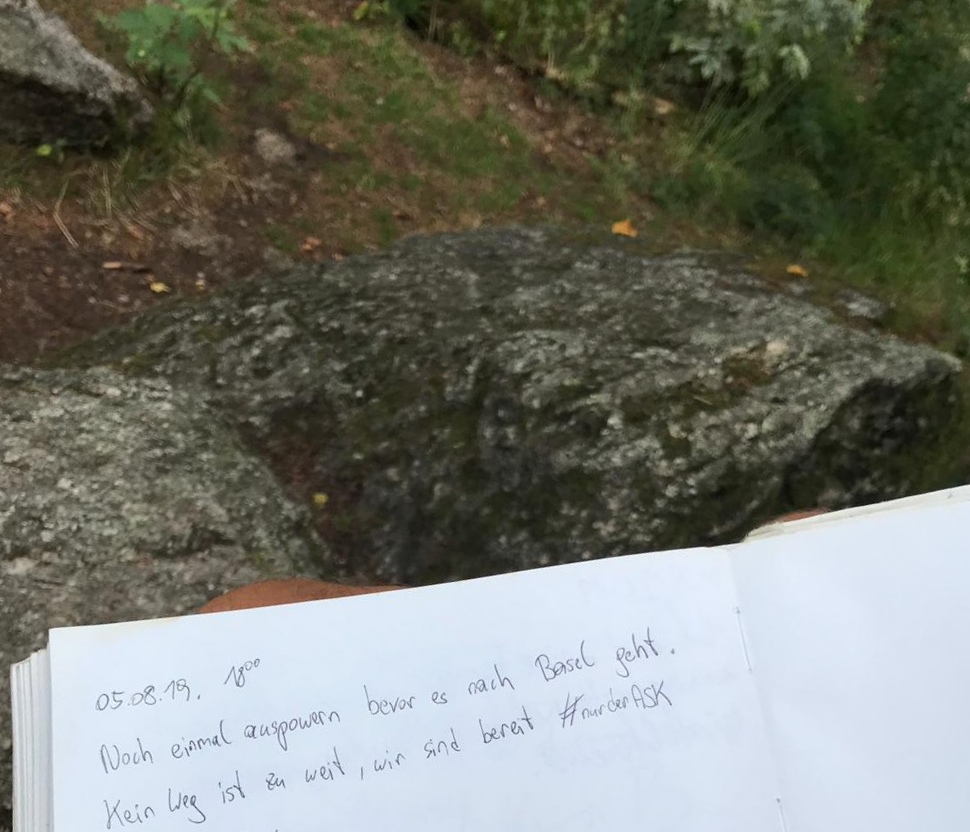 05.08.19. 18⁰⁰
Noch einmal auspowern bevor es nach Basel geht.
Kein Weg ist zu weit, wir sind bereit #nurderASK